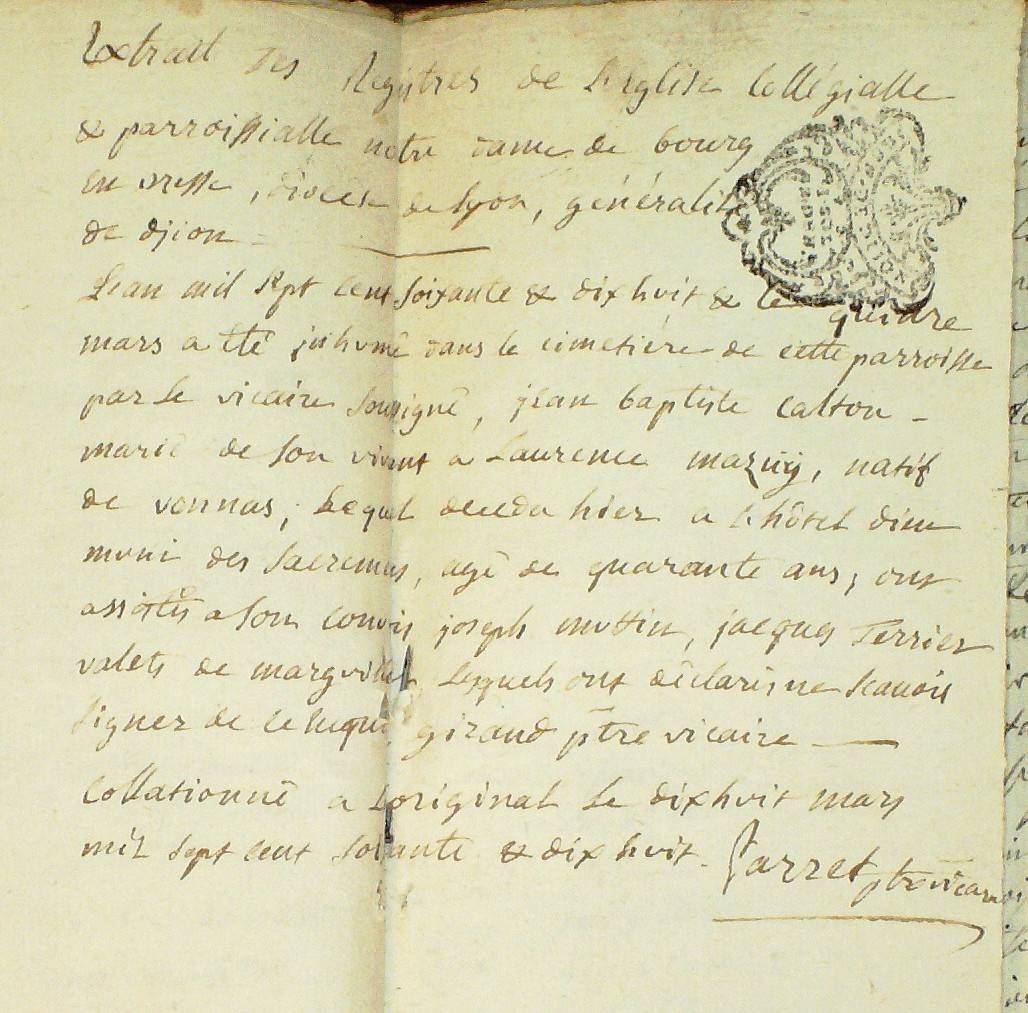 Extrait des Registres de l'eglise collégialle
& parroissialle notre dame de bourg
en bresse, diocese de lyon, généralité
de dijon
L'an mil sept cent soixante & dix huit & le quinze
mars a été inhumé dans le cimetière de cette parroisse
par le vicaire sousigné, jean baptiste calton
marié de son vivant a Laurence mazuÿ, natif
de vonnas, lequel deceda hier a l'hôtel dieu
muni des sacremens, agé de quarante ans, ont
assistés a son convoi joseph muttin, jacques Terrier
valets de marguillier, lesquels ont déclarés ne scavoir
signer de ce requi, giraud ptre vicaire
collationné a l'original le dixhuit mars
mil sept cent soixante & dix huit. Jarret ptre vicaire